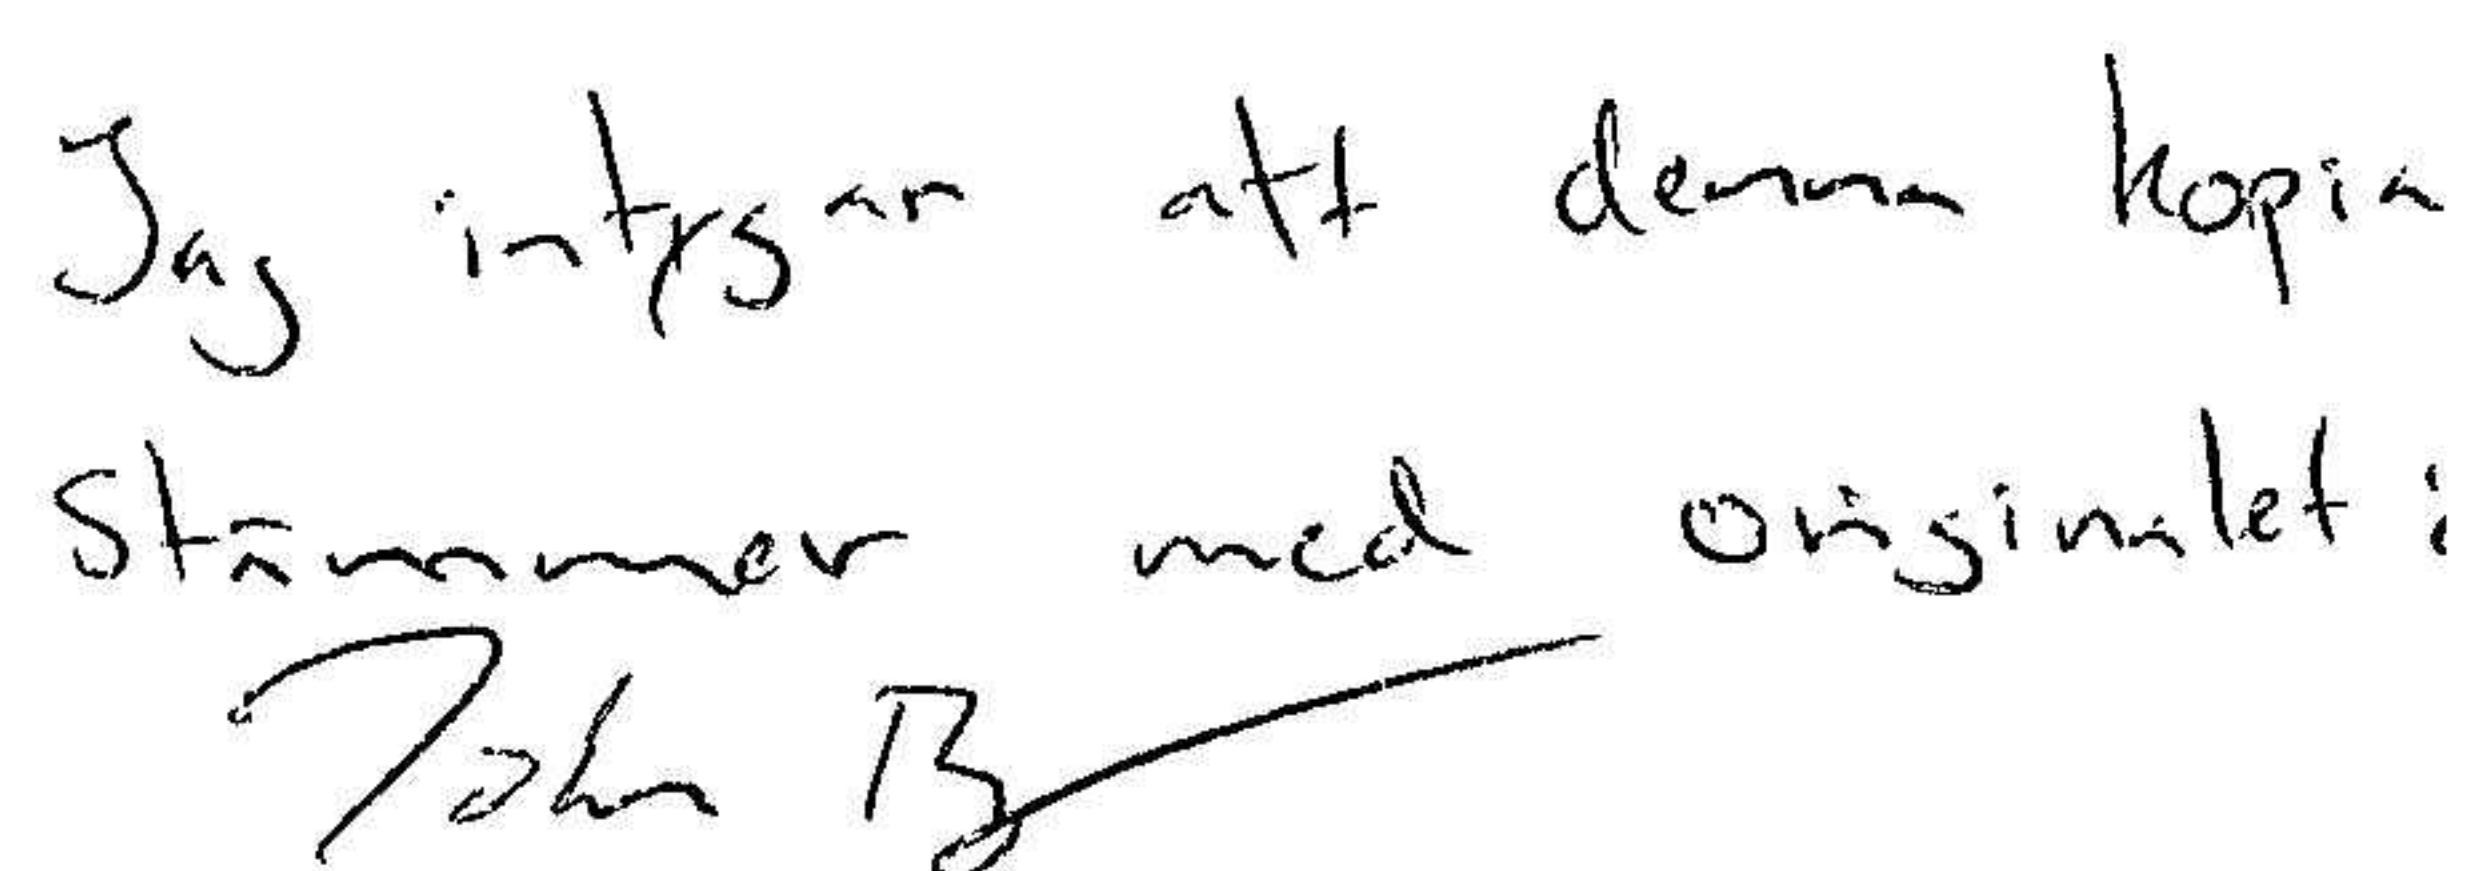 Jag intygar att denna kopia
stämmer med originalet:
John B